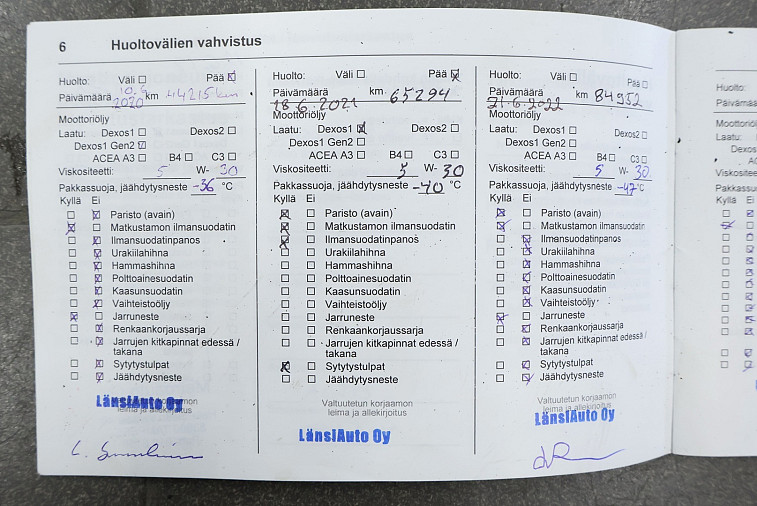 6 Huoltovälien vahvistus
Huolto: Väli ☐ Pää ☒
Päivämäärä 10.6 2020 km 44215 km
Moottoriöljy
Laatu: Dexos1 ☐ Dexos2 ☐
Dexos1 Gen2 ☒
ACEA A3 ☐ B4 ☐ C3 ☐
Viskositeetti: 5 W- 30
Pakkassuoja, jäähdytysneste -36 °C
Kyllä Ei
☐ ☒ Paristo (avain)
☒ ☐ Matkustamon ilmansuodatin
☐ ☒ Ilmansuodatinpanos
☐ ☒ Urakiilahihna
☐ ☒ Hammashihna
☐ ☒ Polttoainesuodatin
☐ ☒ Kaasunsuodatin
☐ ☒ Vaihteistoöljy
☒ ☐ Jarruneste
☐ ☒ Renkaankorjaussarja
☐ ☒ Jarrujen kitkapinnat edessä /
takana
☐ ☒ Sytytystulpat
☐ ☒ Jäähdytysneste
LänsiAuto Oy
leima ja allekirjoitus
Huolto: Väli ☐ Pää ☒
Päivämäärä 18.6.2021 km 65294
Moottoriöljy
Laatu: Dexos1 ☒ Dexos2 ☐
Dexos1 Gen2 ☐
ACEA A3 ☐ B4 ☐ C3 ☐
Viskositeetti: 5 W- 30
Pakkassuoja, jäähdytysneste -40 °C
Kyllä Ei
☒ ☐ Paristo (avain)
☒ ☐ Matkustamon ilmansuodatin
☒ ☐ Ilmansuodatinpanos
☐ ☐ Urakiilahihna
☐ ☐ Hammashihna
☐ ☐ Polttoainesuodatin
☐ ☐ Kaasunsuodatin
☐ ☐ Vaihteistoöljy
☐ ☐ Jarruneste
☐ ☐ Renkaankorjaussarja
☐ ☐ Jarrujen kitkapinnat edessä /
takana
☒ ☐ Sytytystulpat
☐ ☐ Jäähdytysneste
Valtuutetun korjaamon
leima ja allekirjoitus
LänsiAuto Oy
Huolto: Väli ☐ Pää ☐
Päivämäärä 21.6.2022 km 84952
Moottoriöljy
Laatu: Dexos1 ☐ Dexos2 ☐
Dexos1 Gen2 ☐
ACEA A3 ☐ B4 ☐ C3 ☐
Viskositeetti: 5 W- 30
Pakkassuoja, jäähdytysneste -47 °C
Kyllä Ei
☒ ☐ Paristo (avain)
☒ ☐ Matkustamon ilmansuodatin
☐ ☒ Ilmansuodatinpanos
☐ ☒ Urakiilahihna
☐ ☒ Hammashihna
☐ ☒ Polttoainesuodatin
☐ ☒ Kaasunsuodatin
☐ ☒ Vaihteistoöljy
☒ ☐ Jarruneste
☐ ☒ Renkaankorjaussarja
☐ ☒ Jarrujen kitkapinnat edessä /
takana
☐ ☒ Sytytystulpat
☐ ☒ Jäähdytysneste
Valtuutetun korjaamon
leima ja allekirjoitus
LänsiAuto Oy
Huolto:
Laatu:
Kyllä Ei